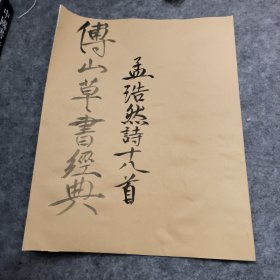 傅山草書經典
孟浩然詩十八首